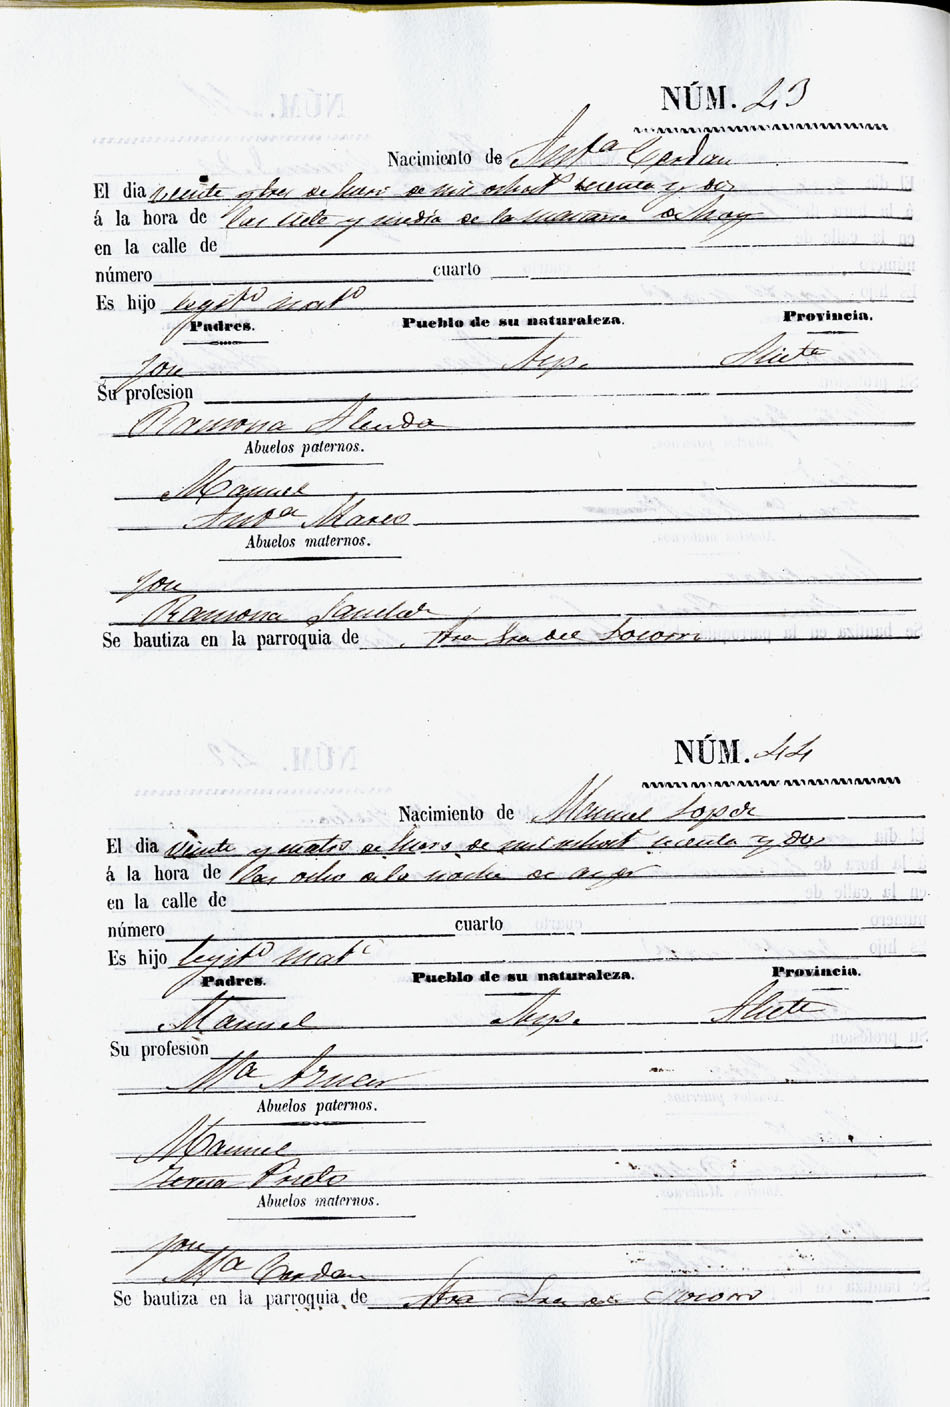 NÚM. 43
Nacimiento de Antª Cerdan
El dia veinte y tres de Enero de mil ochotº sesenta y dos
á la hora de las siete y media de la mañana de hoy
en la calle de
número cuarto
Es hijo legitº natº
Padres. Pueblo de su naturaleza. Provincia.
José Asp. Alicte
Su profesion
Ramona Alenda
Abuelos paternos.
Manuel
Antª Marco
Abuelos maternos.
José
Ramona Sanchez
Se bautiza en la parroquia de Ntra Sra del Socorro
NÚM. 44
Nacimiento de Manuel Lopez
El dia veinte y cuatro de Enero de mil ochot sesenta y dos
á la hora de las ocho de la noche de ayer
en la calle de
número cuarto
Es hijo legitº nat
Padres. Pueblo de su naturaleza. Provincia.
Manuel Asp. Alicte
Su profesion
Mª Aznar
Abuelos paternos.
Manuel
Prieto
Abuelos maternos.
José
Mª Cerdan
Se bautiza en la parroquia de Ntra Sra del Socorro